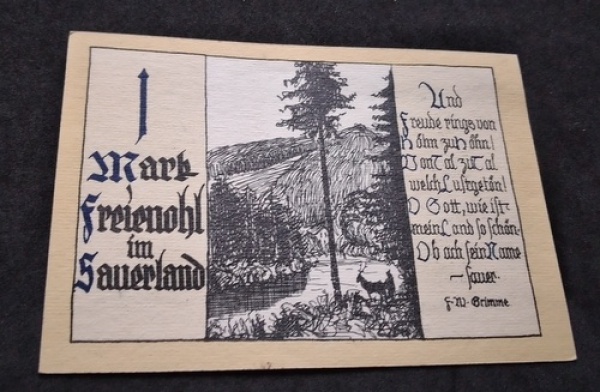 1
Mark
Freienohl
im
Sauerland
Und
Freude rings von
Höhn zu Höhn!
Von Tal zu Tal
welch Lustgetön!
O Gott, wie ist
mein Land so schön-
Ob ach sein Name
- sauer.
F. W. Grimme